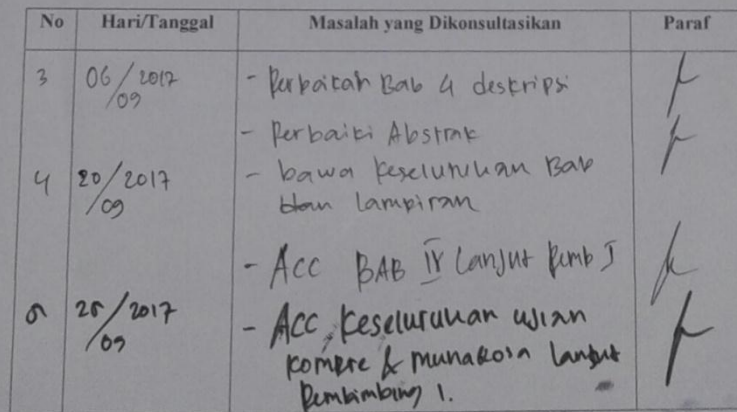 No Hari/Tanggal Masalah yang Dikonsultasikan Paraf
3 06/2017 - Perbaikan Bab 4 deskripsi
/09
- Perbaiki Abstrak
4 20/2017 - bawa keseluruhan Bab
/09 dan Lampiran
- ACC BAB IV Lanjut Pemb I
25/2017 - ACC, keseluruhan ujian
/09 kompre & munaqosa lanjut
Pembimbing 1.